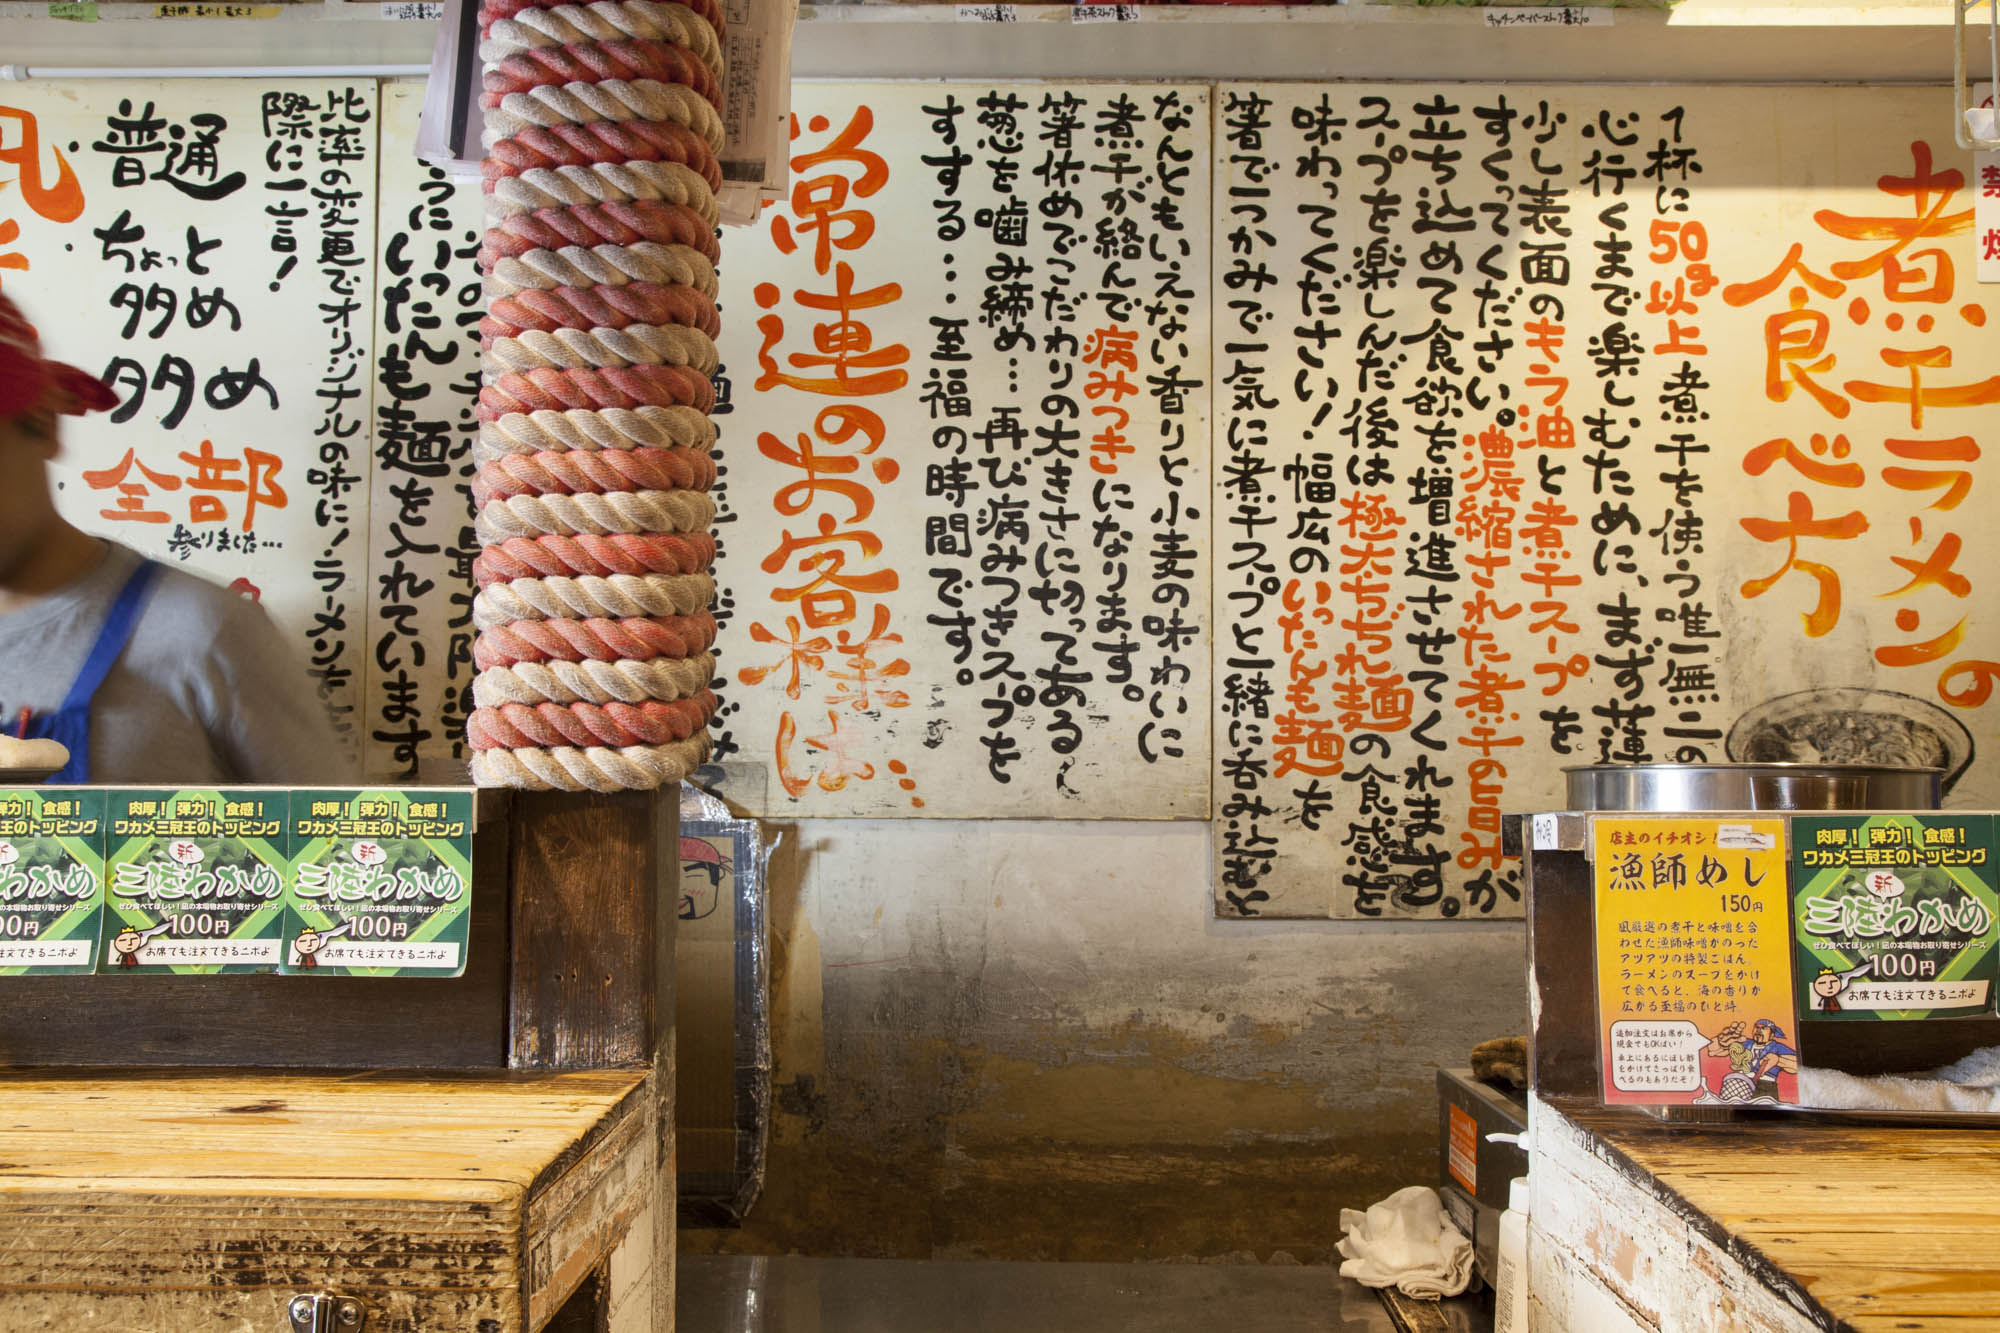 煮干ラーメンの
食べ方
1杯に50g以上煮干を使う唯一無二の
心行くまで楽しむために、まず蓮
少し表面のキラ油と煮干スープを
すくってください。濃縮された煮干の旨みが
立ち込めて食欲を増進させてくれます。
スープを楽しんだ後は極太ちぢれ麺の食感を
味わってください！幅広のいったんも麺を
箸で一つかみで一気に煮干スープと一緒に呑み込むと
なんともいえない香りと小麦の味わいに
煮干が絡んで病みつきになります。
箸休めでこだわりの大きさに切ってある〜
葱を噛み締め…再び病みつきスープを
すする…至福の時間です。
常連のお客様は…
うにいったんも麺を入れています
比率の変更でオリジナルの味に！ラーメンを
際に一言！
普通
ちょっと
多め
多め
全部
参りました…
禁煙
肉厚！弾力！食感！
ワカメ三冠王のトッピング
新
三陸わかめ
ぜひ食べてほしい！凪の本場物お取り寄せシリーズ
100円
お席でも注文できるニボよ
肉厚！弾力！食感！
ワカメ三冠王のトッピング
新
三陸わかめ
ぜひ食べてほしい！凪の本場物お取り寄せシリーズ
100円
お席でも注文できるニボよ
店主のイチオシ！
漁師めし
150円
凪厳選の煮干と味噌を合
わせた漁師味噌がのった
アツアツの特製ごはん。
ラーメンのスープをかけ
て食べると、海の香りが
広がる至福のひと時。
追加注文はお席から
現金でもOKばい！
卓上にあるにぼし酢
をかけてさっぱり食
べるのもありだぞ！
肉厚！弾力！食感！
ワカメ三冠王のトッピング
新
三陸わかめ
ぜひ食べてほしい！凪の本場物お取り寄せシリーズ
100円
お席でも注文できるニボよ